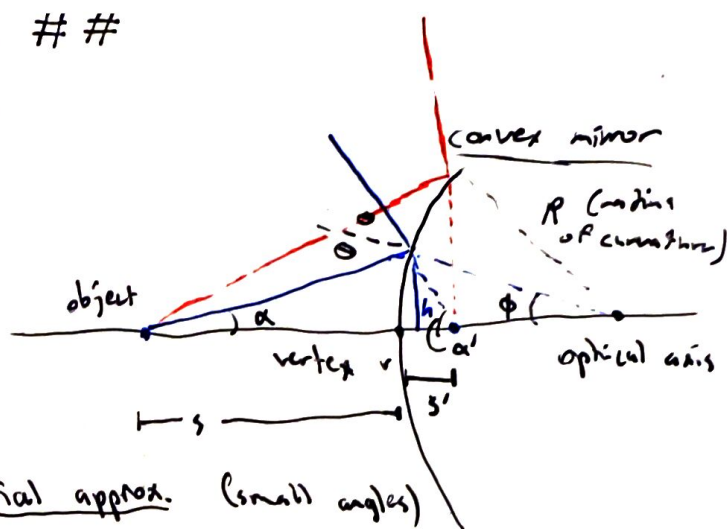 # #
convex mirror
R (radius
of curvature)
θ
θ
object
h
α
ϕ
α'
vertex v
optical axis
s'
s
ial approx. (small angles)